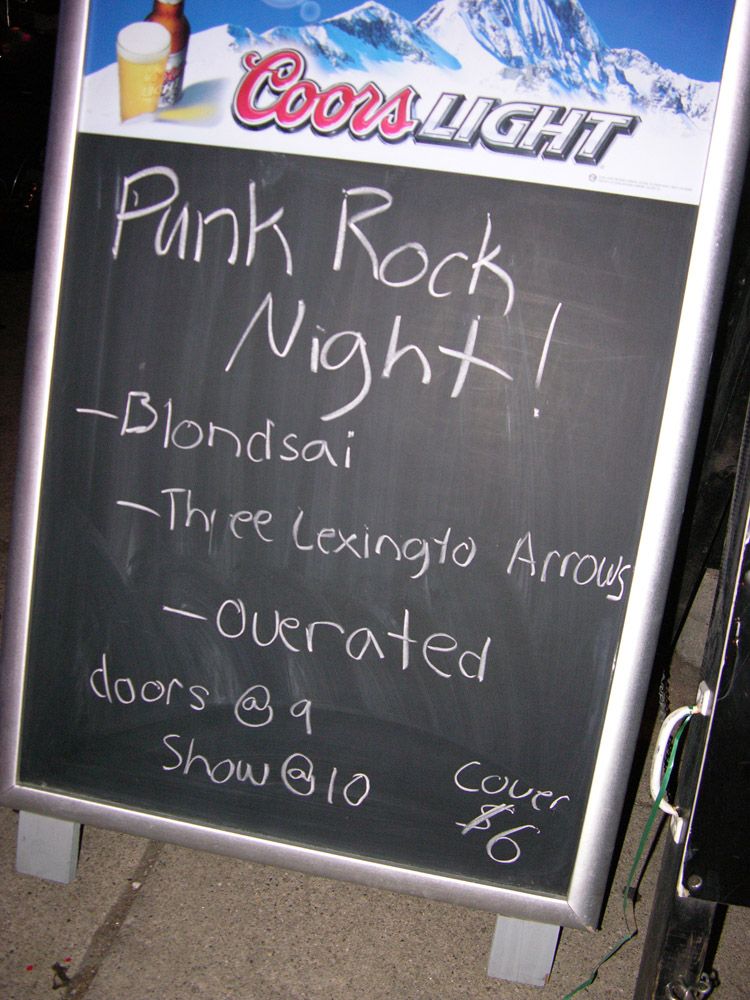 Coors LIGHT
Punk Rock
Night!
- Blondsai
- Three Lexingto Arrows
- Overated
doors @ 9
Show @ 10
cover
$6